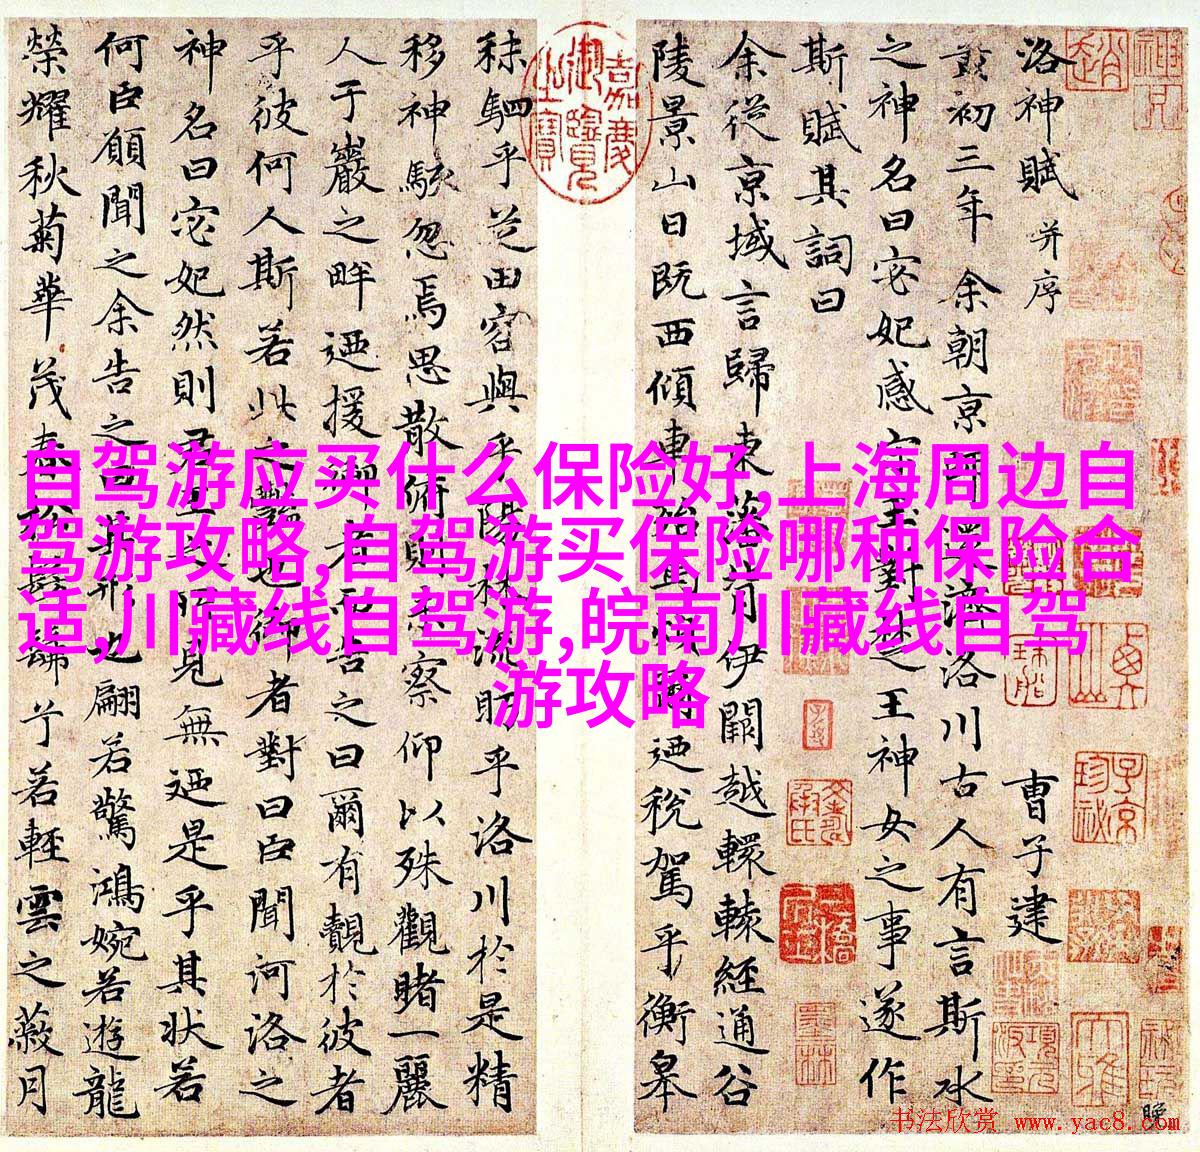 洛神賦 并序 曹子建
黃初三年余朝京師還濟洛川古人有言斯水
之神名曰宓妃感宋玉對楚王神女之事遂作
斯賦其詞曰
余從京域言歸東藩背伊闕越轘轅經通谷
陵景山日既西傾車殆馬煩爾迺稅駕乎衡皋
秣駟乎芝田容與乎陽林流盼乎洛川於是精
移神駭忽焉思散俯則未察仰以殊觀睹一麗
人于巖之畔迺援御者而告之曰爾有覿於彼者
乎彼何人斯若此之豔也御者對曰臣聞河洛之
神名曰宓妃然則君王之所見無迺是乎其狀若
何臣願聞之余告之曰其形也翩若驚鴻婉若遊龍
榮耀秋菊華茂春松髣髴兮若輕雲之蔽月
嘉慶御覽之寶
自驾游应买什么保险好,上海周边自
驾游攻略,自驾游买保险哪种保险合
适,川藏线自驾游,皖南川藏线自驾
游攻略
书法欣赏 www.yac8.com